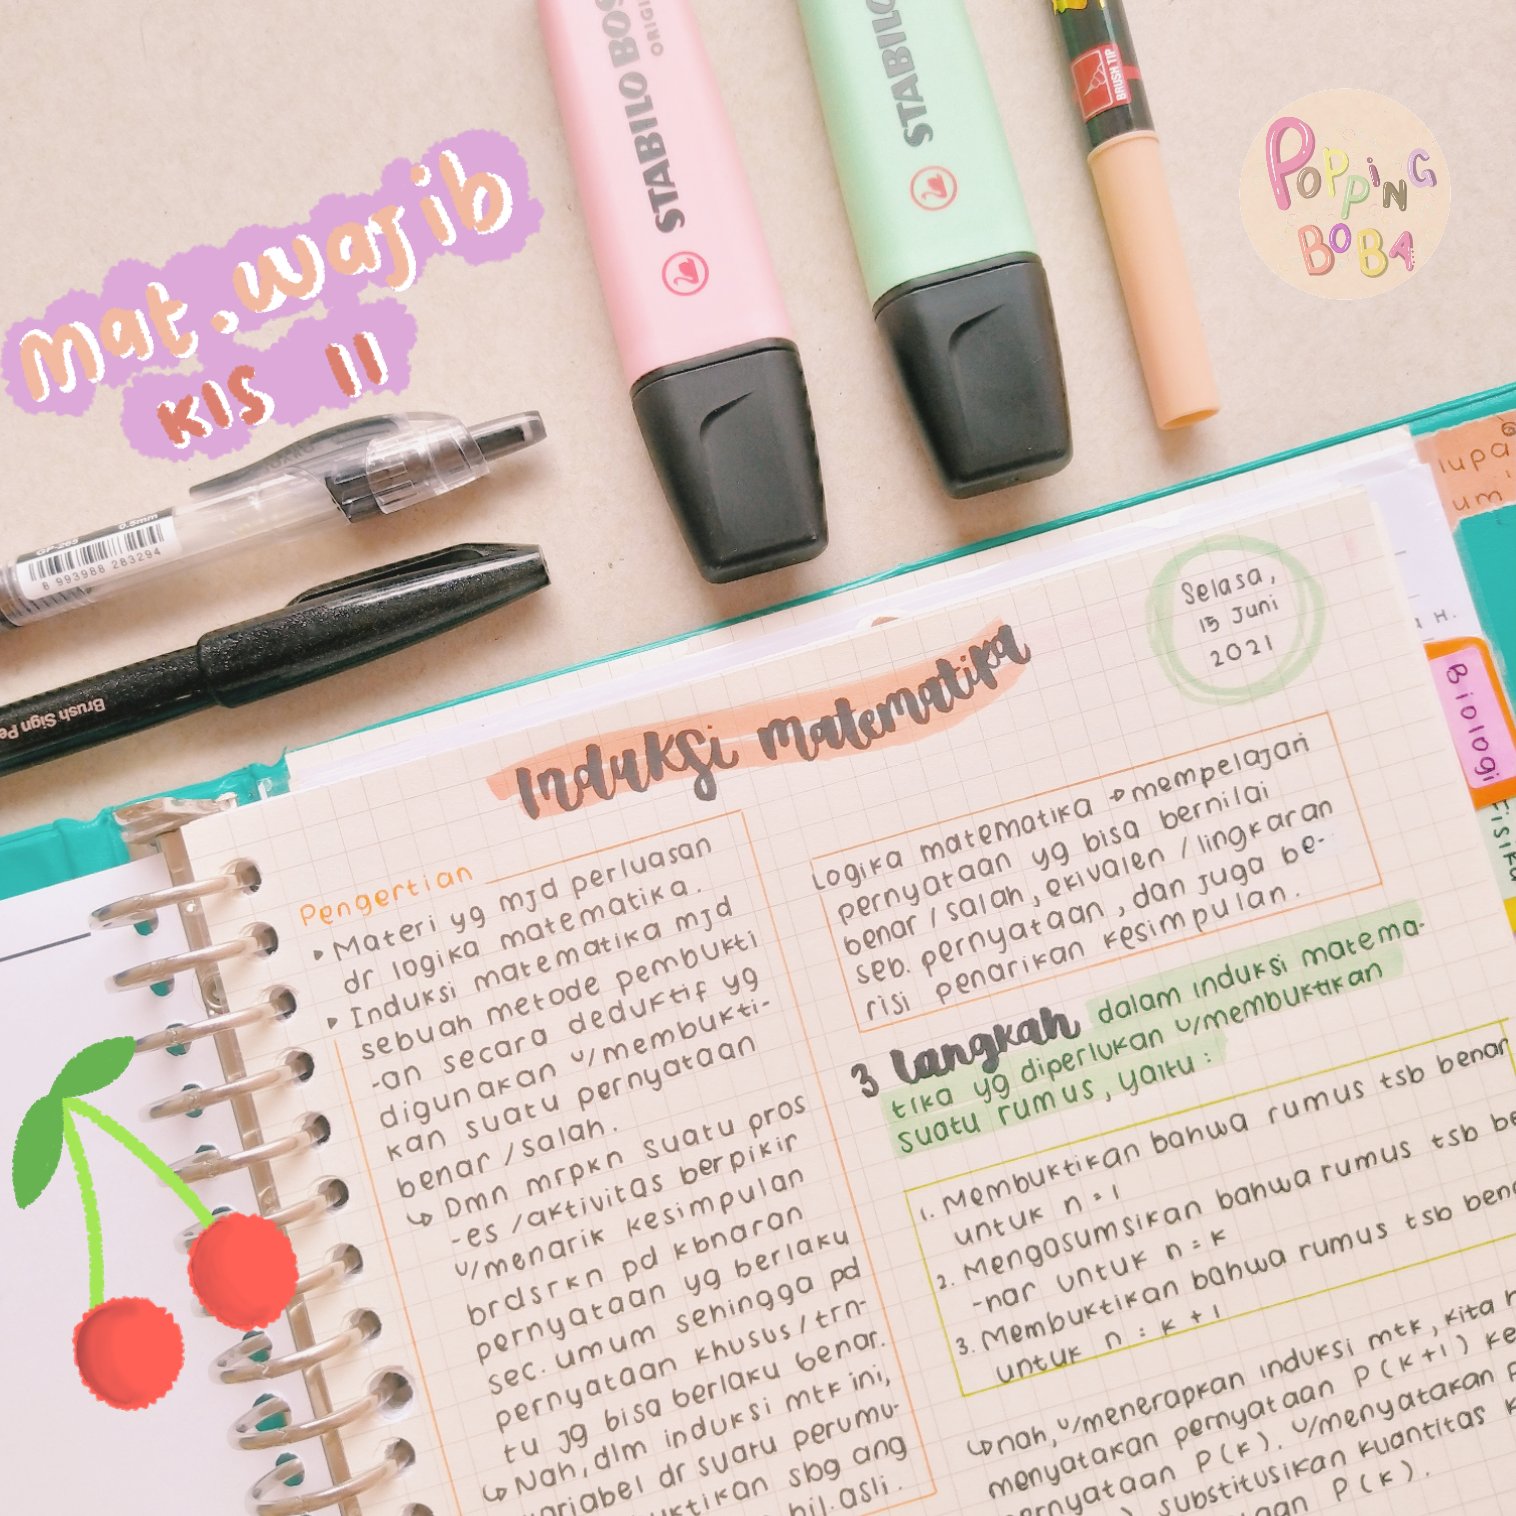 Mat. Wajib
Kls 11
STABILO BOS
ORIGI
STABILO
BRUSH TIP
POPPING
BOBA
0.5mm
GP-265
8 993988 283294
Brush Sign Pe
lupa
um
Biologi
Fisika
Selasa,
15 Juni
2021
Induksi Matematika
Pengertian
Materi yg mjd perluasan
dr logika matematika.
Induksi matematika mjd
sebuah metode pembukti
-an secara deduktif yg
digunakan u/membukti-
kan suatu pernyataan
benar/salah.
↳ Dmn mrpkn suatu pros
-es/aktivitas berpikir
u/menarik kesimpulan
brdsrkn pd kbnaran
pernyataan yg berlaku
sec.umum sehingga pd
pernyataan khusus/trn-
tu jg bisa berlaku benar.
↳ Nah,dlm induksi mtk ini,
variabel dr suatu perumu-
ktikan sbg ang
bil.asli.
Logika matematika → mempelajari
pernyataan yg bisa bernilai
benar/salah, ekivalen/lingkaran
seb. pernyataan, dan juga be-
risi penarikan kesimpulan.
3 Langkah dalam induksi matema-
tika yg diperlukan u/membuktikan
suatu rumus, yaitu:
1. Membuktikan bahwa rumus tsb benar
untuk n=1
2. Mengasumsikan bahwa rumus tsb be
-nar untuk n=k
3. Membuktikan bahwa rumus tsb bena
untuk n=k+1
↳ nah, u/menerapkan induksi mtk, kita h
menyatakan pernyataan P(k+1) ke
pernyataan P(k). u/menyatakan P
substitusikan kuantitas k
aan P(k).